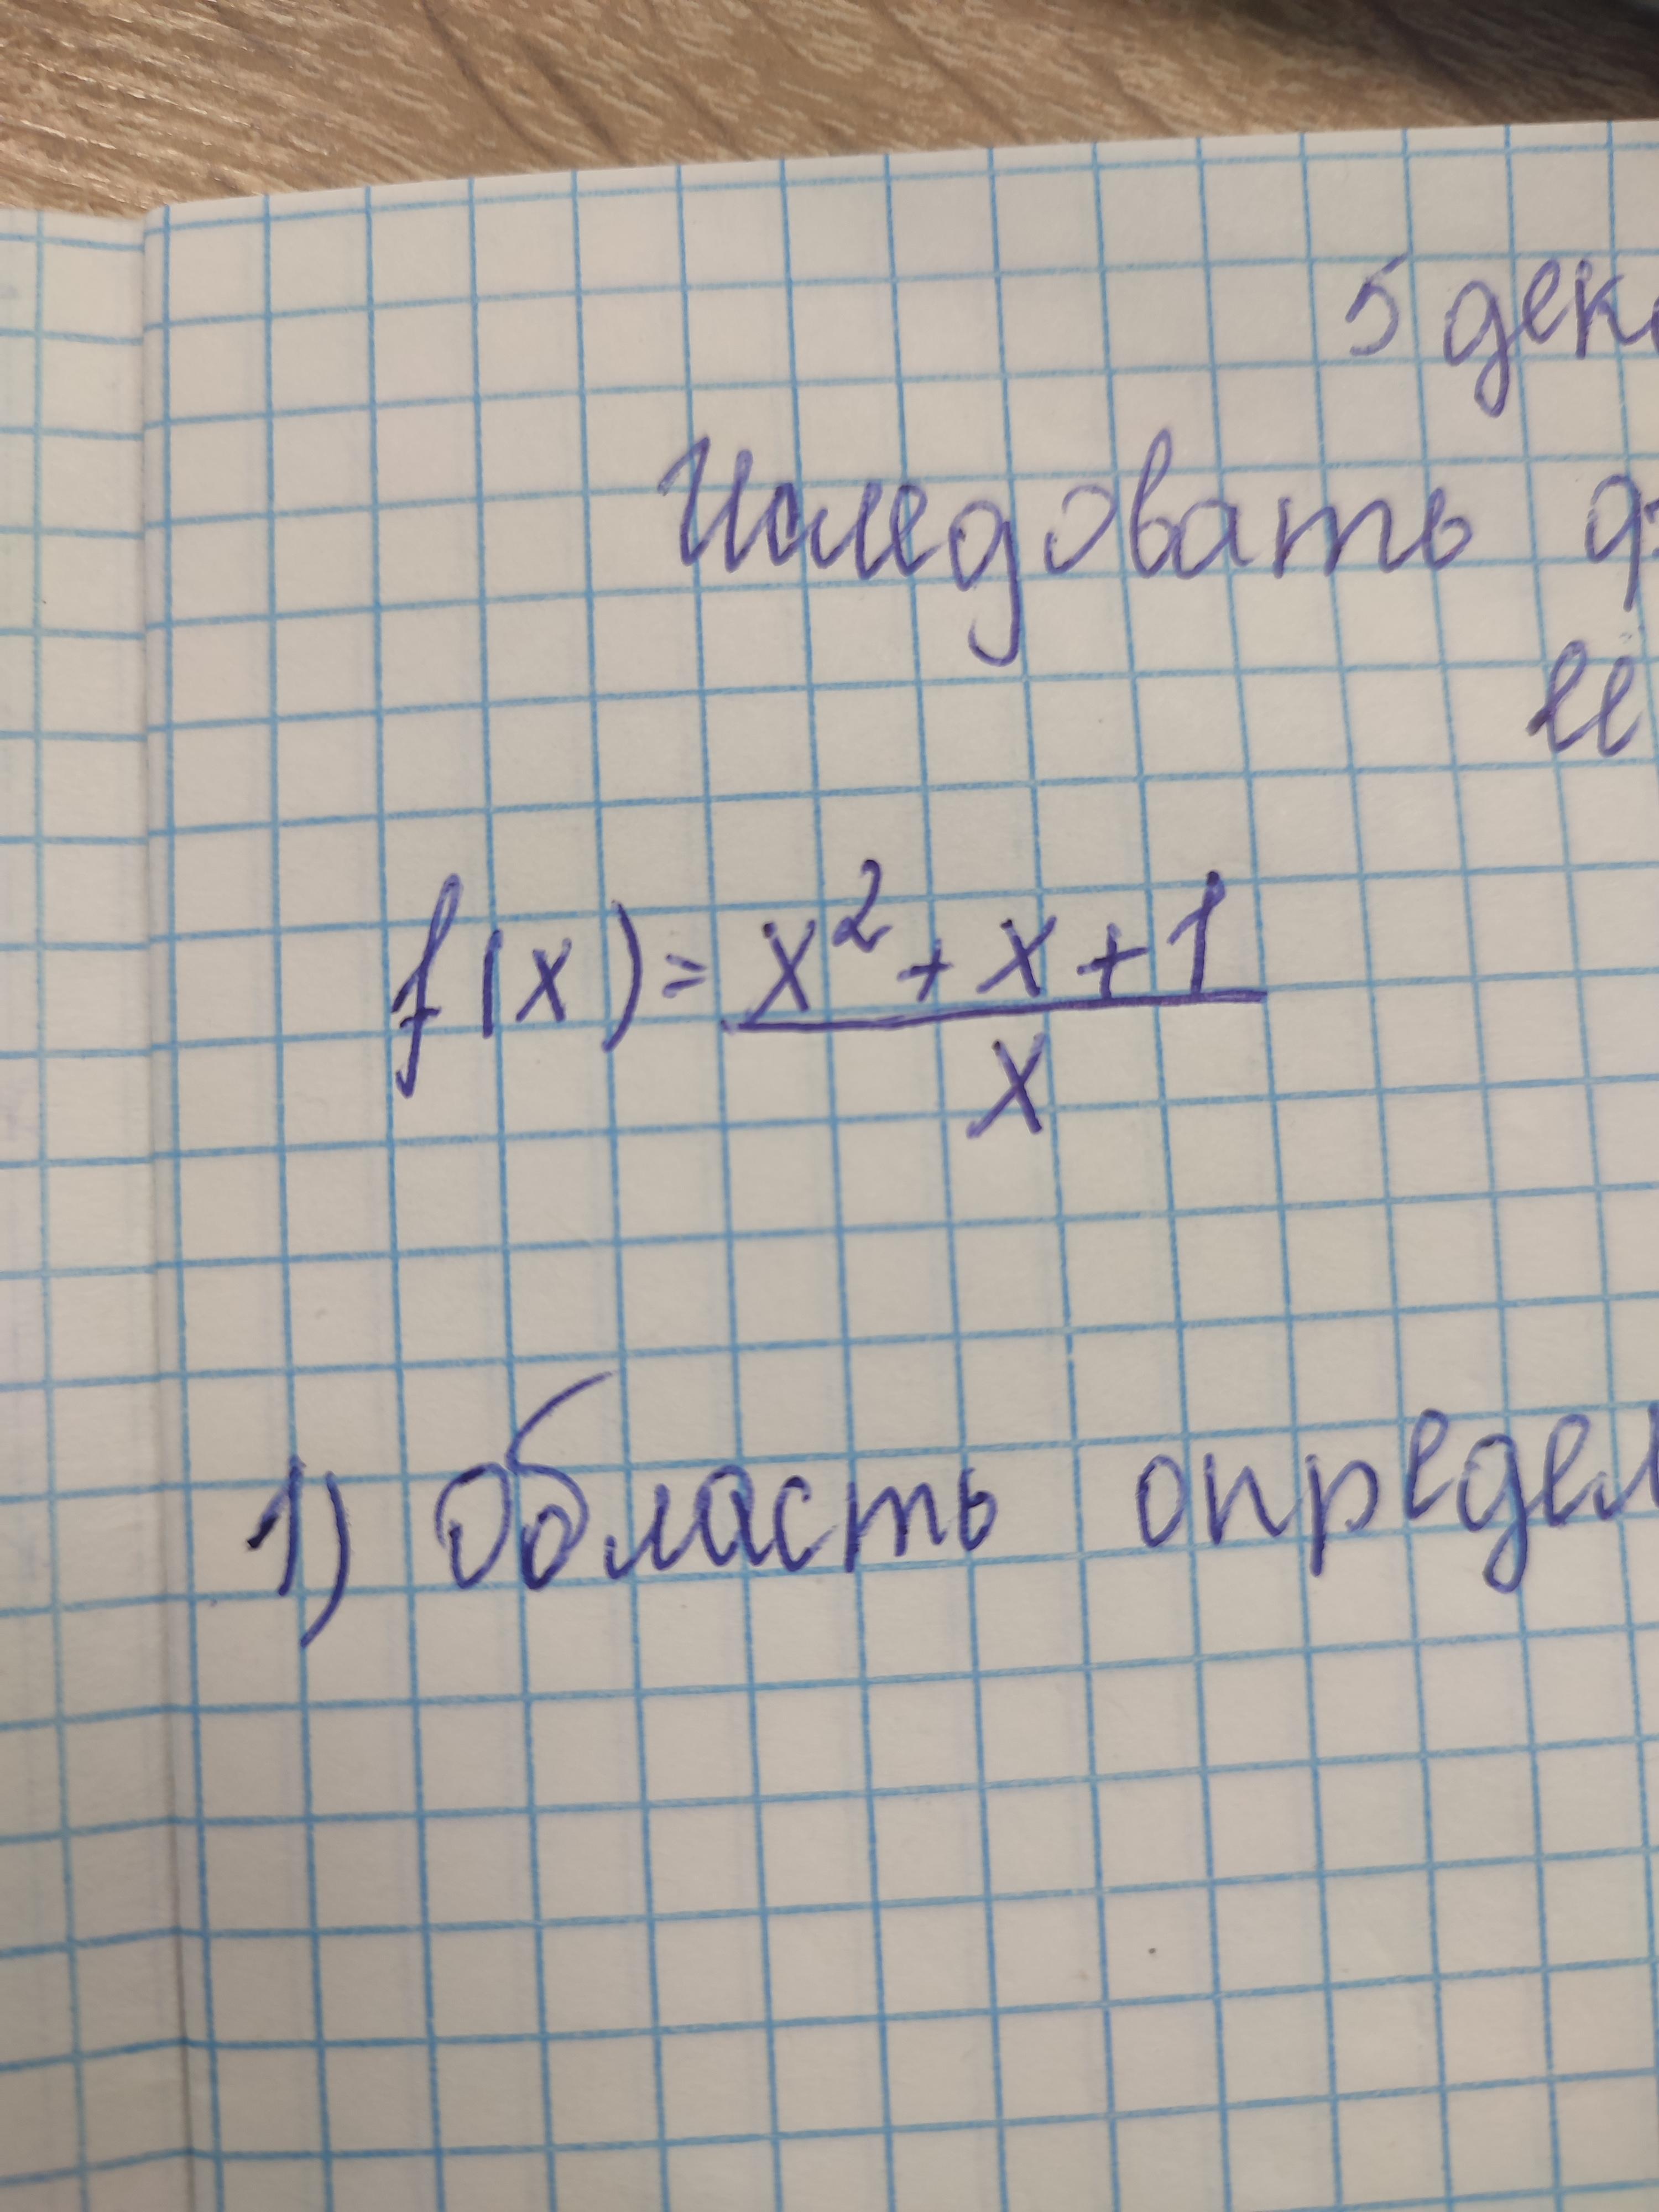 5 дек
Иследовать
её
f(x) = x² + x + 1
x
1) Область определ